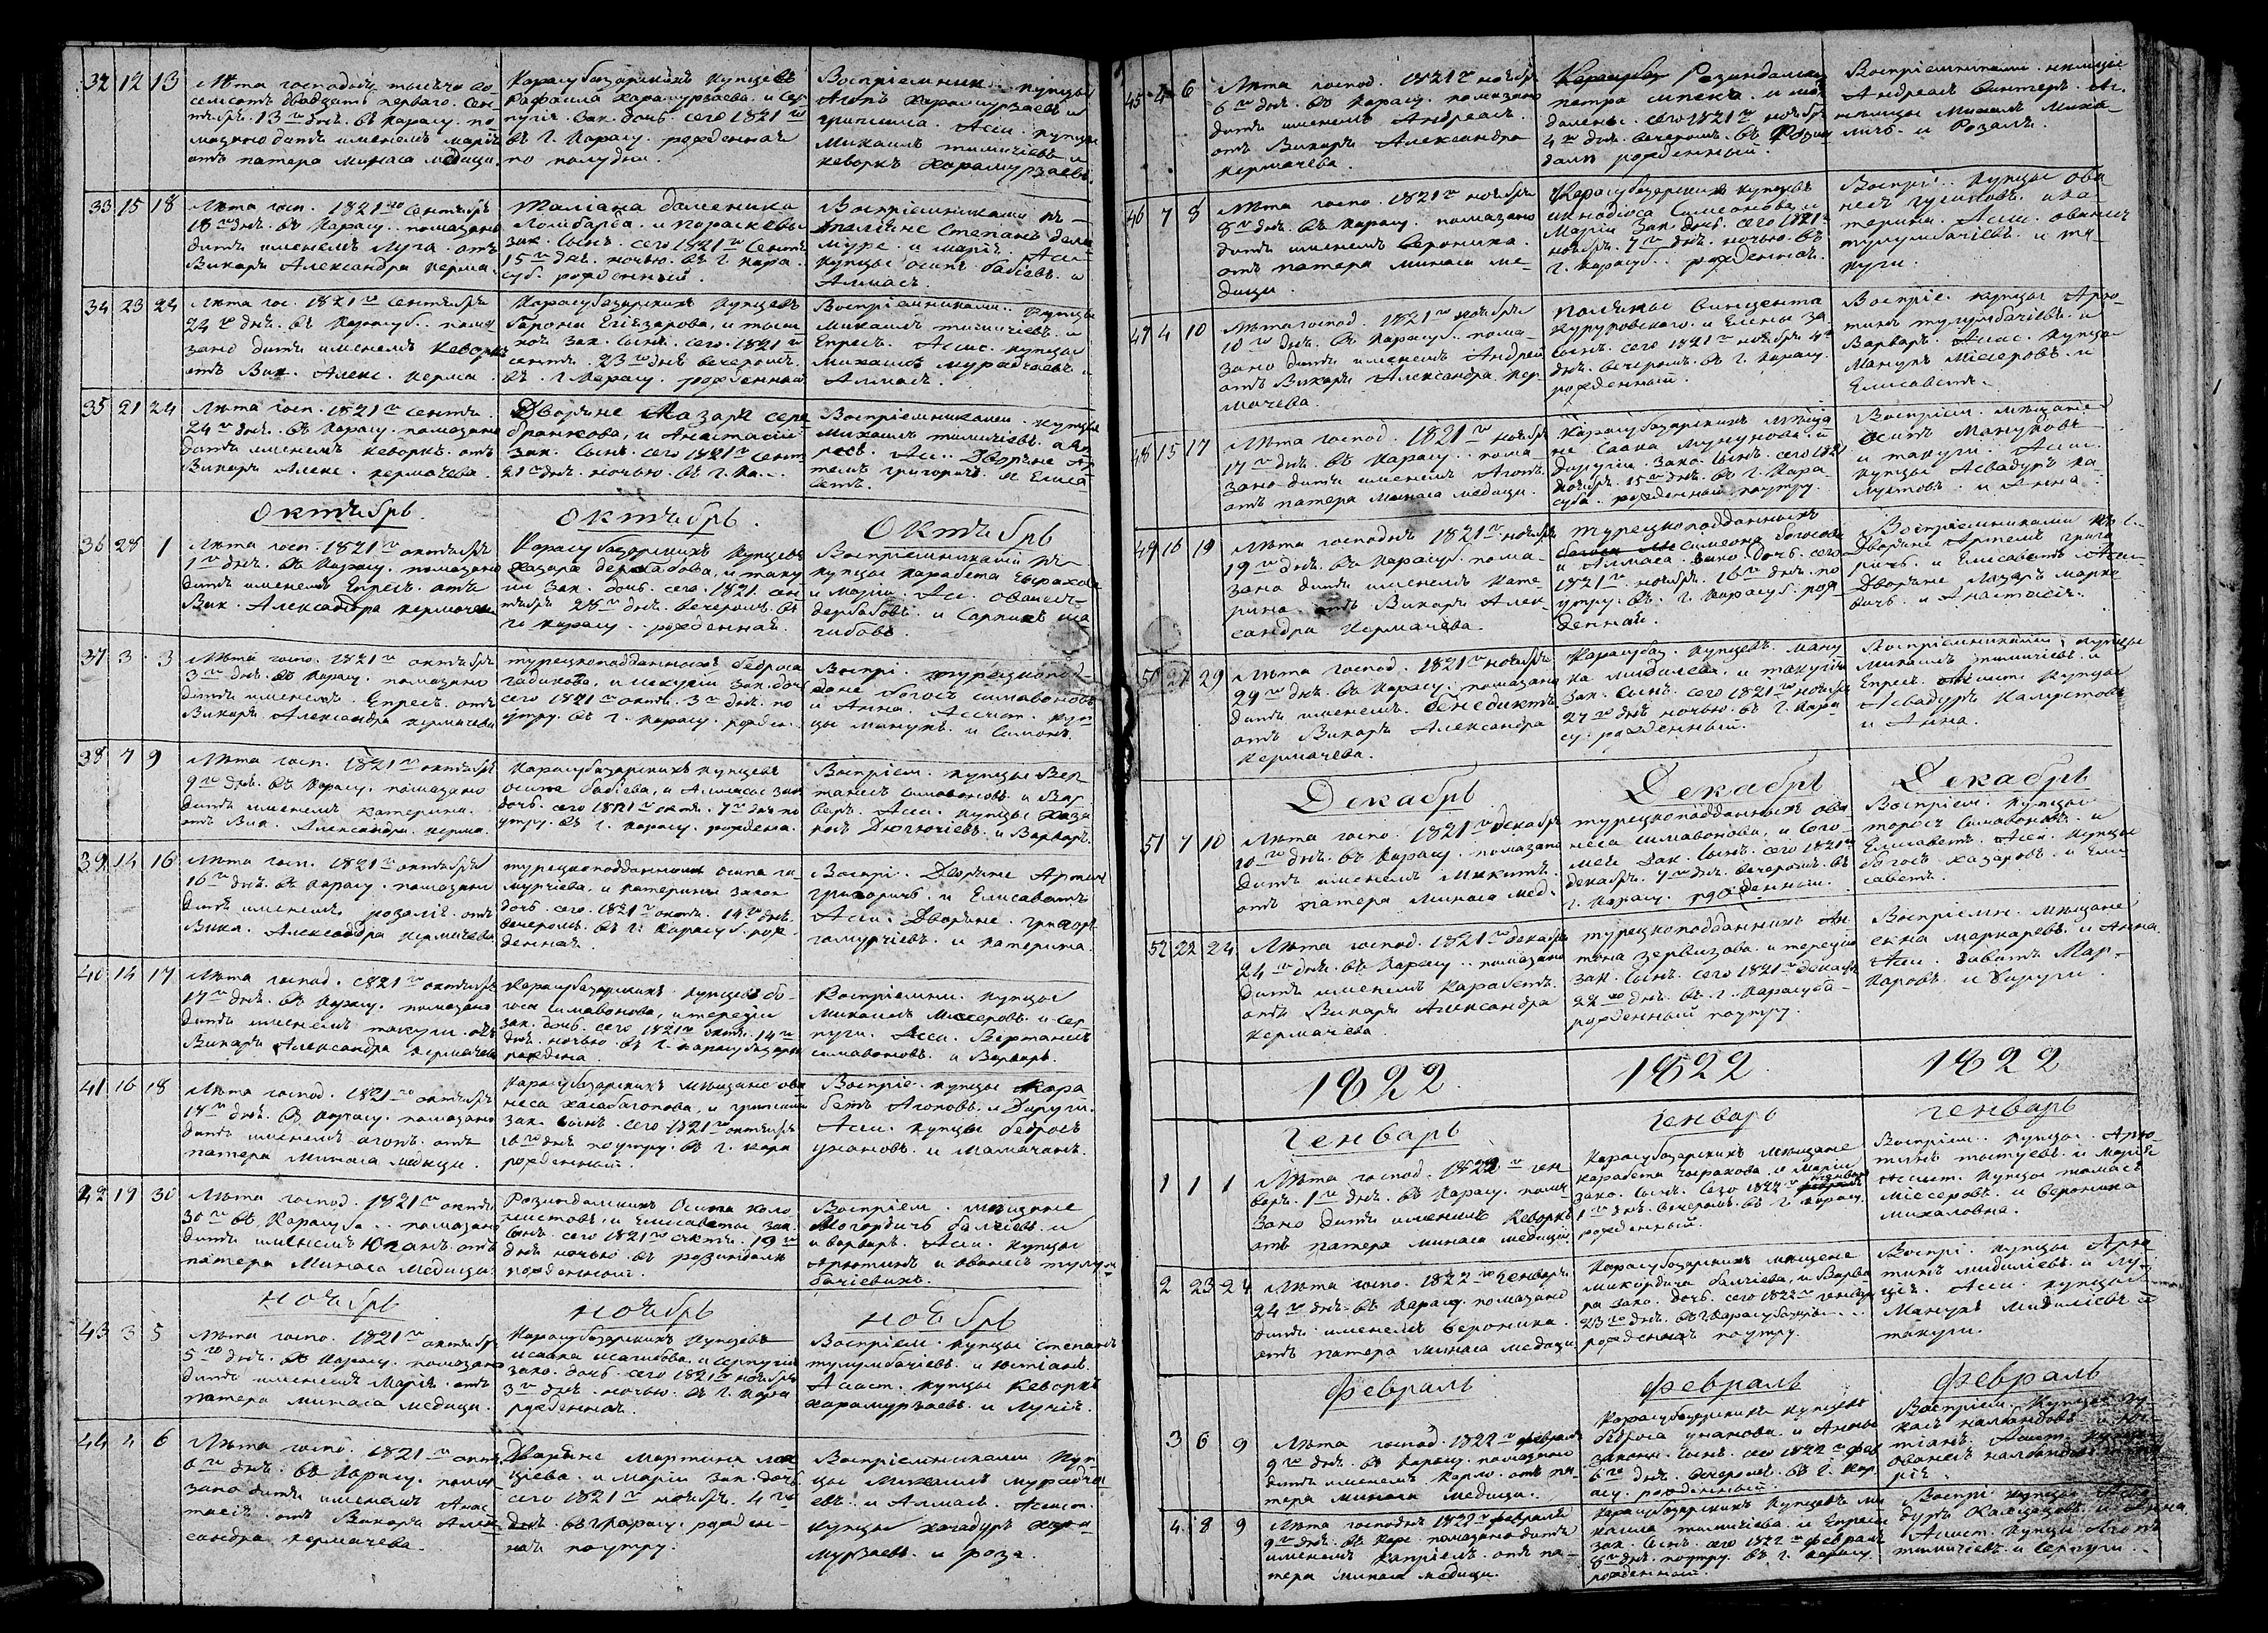 32 12 13
Лѣта господнѧ тысѧчо во
семсотъ двадцать перваго. Сен
тѧбрѧ. 13 го днѧ. въ Карасу. по
мазано дитѧ именемъ марїѧ
отъ патера Минаса медици.
Карасубазарскихъ купцевъ
Рафаила Карамурзаева. и Сер
пуги. Зак. дочь. сего 1821 го
въ г. Карасу. рожденнаѧ
по полудни.
Воспрїемник. купцы
Агопъ Карамурзаевъ и
грипсима. Асси. купцы
Михаилъ тишичїевъ и
кеворкъ Карамурзаевъ.
33 15 18
Лѣта госп. 1821 го Сентѧбрѧ
18 го днѧ. въ Карасу. помазано
дитѧ именемъ Лука. отъ
Викарѧ Александра Керма.
Талїана доменика
Ломбарда. и Параскевы
зак. сынъ. сего 1821 го Сент
15 го днѧ. ночью. въ г. Кара
суб. рожденный.
Воспрїемниками
Степанъ
и марїѧ. Асси
купцы осипъ бабїевъ. и
Алмасъ.
34 23 24
Лѣта гос. 1821 го Сентѧбрѧ
24 го днѧ. въ Карасуб. пома
зано дитѧ именемъ Кеворкъ
отъ Вик. Алекс. Керма.
Карасубазарскихъ купцевъ
Егїазарова, и
зак. сынъ. сего. 1821 го
сентѧ. 23 го днѧ вечеромъ.
въ г. Карасу. рожденный
Воспрїемниками. Купцы
Михаилъ тишичїевъ. и
Епресъ. Асис. купцы
Михаилъ мурадчаевъ
Алмасъ.
35 21 24
Лѣта госп. 1821 го Сентѧ.
24 го днѧ. въ Карасу. помазано
дитѧ именемъ Кеворкъ. отъ
Викарѧ Алекс. Кермачева.
Дворѧне Лазарѧ сере
брѧкова, и Анастасїи
Зак. сынъ. сего 1821 го Сент
21 го днѧ. ночью. въ г. Ка.
Воспрїемниками купцы
Михаилъ тишичїевъ. и Еп
ресъ. Асс. Дворѧне Ар
темъ григоричъ. и Елиса
бетъ.
Октѧбрь. Октѧбрь. Октѧбрь
36 28 1
Лѣта госп. 1821 го октѧбрѧ
1 го днѧ. въ Карасу. помазано
дитѧ именемъ Епресъ. отъ
Вик. Александра Кермачева
Карасубазарскихъ купцевъ
Хазара дербабова, и таку
ги зак. дочь. сего. 1821. сен
тѧбрѧ 28 го днѧ. вечеромъ. въ
г. Карасу. рожденнаѧ.
Воспрїемниками
купцы Карабета Чырахова
и марїѧ. Асс. ованесъ
дербабовъ. и Саркисъ ша
гибовъ.
37 3 3
Лѣта госпо. 1821 го октѧбрѧ
3 го днѧ. въ Карасу. помазано
дитѧ именемъ. Епресъ. отъ
Викарѧ Александра Кермачева
турецкоподданныхъ бедроса
гадикова, и искуги зак. дочь
сего 1821 го октѧ. 3 го днѧ. по
утру. въ г. Карасу. рожден.
Воспрї. турецкопод
дане богосъ симавоновъ
и Анна. Ассист. куп
цы Манукъ. и Симонъ.
38 7 9
Лѣта госп. 1821 го октѧбрѧ
9 го днѧ. въ Карасу. помазано
дитѧ именемъ Катерина.
отъ Вик. Александра. Керма.
Карасубазарскихъ купцевъ
осипа бабїева, и Алмасы зак
дочь. сего 1821 го октѧ. 7 го днѧ по
утру. въ г. Карасу. рожденна.
Воспрїем. купцы Вер
танесъ симавоновъ. и Вар
варъ. Асси. купцы Хаза
росъ Дюлючїевъ. и Варваръ.
39 14 16
Лѣта госп. 1821 го октѧбрѧ
16 го днѧ. въ Карасу. помазано
дитѧ именемъ розалїѧ. отъ
Вика. Александра Кермачева
турецкоподданныхъ осипа га
мурчїева, и Катерины закон
дочь. сего. 1821 го октѧ. 14 го днѧ.
вечеромъ. въ г. Карасуб. рож
деннаѧ.
Воспрї. Дворѧне Артемъ
григоричъ и Елисабетъ
Асси. Дворѧне. григорїй
гамурчїевъ. и Катерина.
40 14 17
Лѣта господ. 1821 го октѧбрѧ
17 го днѧ. въ Карасу. помазано
дитѧ именемъ такуги. отъ
Викарѧ Александра Кермачева
Карасубазарскихъ купцевъ бо
госа симавонова, и терезїи
зак. дочь. сего 1821 го октѧ. 14 го
днѧ. ночью въ г. Карасубазарѣ
рождена.
Воспрїемни. купцы
Михаилъ Миссеровъ. и сер
пуги. Асси. Вертанесъ
симавоновъ. и Варваръ.
41 16 18
Лѣта господ. 1821 го октѧбрѧ
18 го днѧ. въ Карасу. помазано
дитѧ именемъ агопъ. отъ
патера Минаса Медици.
Карасубазарскихъ мѣщане ова
неса и грипсими
зак. сынъ. сего 1821 го октѧбрѧ
16 го днѧ поутру. въ г. Кара
рожденный.
Воспрїе. купцы Кара
бетъ Агоповъ. и Дируги.
Асси. купцы бедросъ
унановъ. и Мамачанъ.
42 19 30
Лѣта господ. 1821 го октѧ
30 го въ Карасуба.. помазано
дитѧ именемъ Юганъ. отъ
патера Минаса Медици.
Розиндалскихъ Осипа коло
нистовъ, и Елисаветы зак.
сынъ. сего 1821 го октѧ. 19 го
днѧ ночью. въ розиндали
рожденный.
Воспрїем. мѣщане
Могордичъ балчїевъ. и
и варваръ. Асси. купцы
арютинъ и Ованесъ тулум
бачїевихъ.
ноѧбрь ноѧбрь ноѧбрь
43 3 5
Лѣта госпо. 1821 го октѧбрѧ
5 го днѧ. въ Карасу. помазано
дитѧ именемъ Марїѧ. отъ
патера Минаса Медици.
Карасубазарскихъ купцевъ
Исаака исагибова. и серпугїи
зако. дочь. сего 1821 го ноѧбрѧ
3 го днѧ. ночью. въ г. Кара
рожденнаѧ.
Воспрїем. купцы степанъ
тулумбачїевъ. и Юстїанъ.
Ассист. купцы Кеворкъ
карамурзаевъ. и Лучїѧ.
44 4 6
Лѣта госпо. 1821 го октѧ
6 го днѧ. въ Карасу. пома
зано дитѧ именемъ Анас
тасїѧ. отъ Викарѧ Алек
сандра Кермачева.
Дворѧне Мартина
и Марїи зак. дочь
сего 1821 го ноѧбрѧ. 4 го
днѧ въ г Карасу. рожден
наѧ поутру.
Воспрїемниками Куп
цы Михаилъ Мурадча
евъ. и Алмасъ. Ассист.
Купцы Хачадуръ Кара
мурзаевъ. и роза.
45 4 6
Лѣта господ. 1821 го ноѧбрѧ
6 го днѧ. въ Карасу. помазано
дитѧ именемъ Андреасъ.
отъ Викарѧ Александра
Кермачева.
Карасубаз Розиндалскихъ
петра и маг
далены. сего 1821 го ноѧбрѧ
4 го днѧ. вечеромъ. въ Розин
дали рожденный.
Воспрїемниками. нѣмцы
Андреасъ Винтеръ. Ас.
нѣмцы Михаилъ Миха
личъ. и Розалъ.
46 7 8
Лѣта госпо. 1821 го ноѧбрѧ
8 го днѧ. въ Карасу. помазано
дитѧ именемъ вероника.
отъ патера Минаса Ме
дици.
Карасубазарскихъ купцевъ
Симеонова, и
Марїи зак дочь. сего 1821 го
ноѧбрѧ. 7 го днѧ. ночью. въ
г. Карасуб.. рожденнаѧ.
Воспрї.. купцы ова
несъ и ка
терина. Асси. ованесъ
тулумбачїевъ. и та
куги.
47 4 10
Лѣта господ. 1821 го ноѧбрѧ
10 го днѧ. въ Карасуб. пома
зано дитѧ именемъ Андрей
отъ Викарѧ Александра Кер
мачева.
Полѧкы Винцента
Куруковскаго. и Елены за
сынъ. сего 1821 го ноѧбрѧ 4 го
днѧ. вечеромъ. въ г. Карасу.
рожденный.
Воспрїе. купцы Арю
тинъ тулумбачїевъ. и
Варваръ. Асис. купцы
Манукъ Миссеровъ. и
Елисаветъ.
48 15 17
Лѣта господ. 1821 го ноѧбрѧ
17 го днѧ. въ Карасу. пома
зано дитѧ именемъ Агопъ.
отъ патера Минаса Медици.
Карасубазарскихъ мѣща
не Саака Мунунова. и
Дируги. Зако. сынъ. сего 1821
ноѧбрѧ. 15 го днѧ. въ г. Кара
суба. рожденный поутру.
Воспрїем. мѣщане
Осипъ Мануковъ
и такуги. Асси.
купцы Асвадуръ Ка
мустовъ. и Анна.
49 16 19
Лѣта господнѧ 1821 го ноѧбрѧ
19 го днѧ. въ Карасуб. пома
зано дитѧ именемъ Кате
рина отъ Викарѧ Алек
сандра Кермачева.
турецкоподданныхъ
Симеона богосова
и Алмаса. зако дочь. сего
1821 го ноѧбрѧ. 16 го днѧ. по
утру. въ г. Карасуб. рож
деннаѧ.
Воспрїемниками
Дворѧне Артемъ григо
ричъ. и Елисабетъ. Асси
Дворѧне Лазарь марке
вичъ. и Анастасїѧ.
50 27 29
Лѣта господ. 1821 го ноѧбрѧ
29 го днѧ. въ Карасу. помазано
дитѧ именемъ. бенедиктъ
отъ Викарѧ Александра
Кермачева.
Карасубаз. купцевъ. ману
ка мидилева. и такуги
зак. сынъ. сего 1821 го ноѧбрѧ
27 го днѧ ночью. въ г. Кара
су. рожденный.
Воспрїемниками купцы
Михаилъ тишичїевъ. и
Епресъ. купцы
Асвадуръ Калустовъ
и Анна.
Декабрь Декабрь Декабрь
51 7 10
Лѣта госпо. 1821 го декабрѧ
10 го днѧ. въ Карасу. помазано
дитѧ именемъ Микитъ.
отъ патера Минаса Мед.
турецкоподданныхъ ова
неса симавонова, и Сого
ме зак. сынъ. сего 1821 го
декабрѧ. 7 го днѧ. вечеромъ. въ
г. Карасу. рожденный.
Воспрїем. купцы
торосъ Симавоновъ. и
Елисаветъ. Асси. купцы
богосъ хазаровъ. и Ели
саветъ.
52 22 24
Лѣта господ. 1821 го декабрѧ
24 го днѧ. въ Карасу. помазано
дитѧ именемъ Карабетъ.
отъ Викарѧ Александра
Кермачева.
турецкоподданныхъ Ан
тона зервизова. и терезїи
зак. сынъ. сего 1821 го декабрѧ
22 го днѧ. въ г. Карасуба
рожденный поутру.
Воспрїемн. мѣщане
маркаревъ. и Анна.
Асси. Мар
каровъ. и Хируги.
1822. 1822. 1822
генварь генварь генварь
1 1 1
Лѣта господ. 1822 го ген
варѧ. 1 го днѧ. въ Карасу. пома
зано дитѧ именемъ Кеворкъ
отъ патера Минаса Медици
Карасубазарскихъ мѣщане
Карабета чирахова. и Марїи
зако. сынъ. сего 1822 го генварѧ
1 го днѧ. вечеромъ. въ г. Карасу.
рожденный.
Воспрїем. купцы. Арю
тинъ и Марїѧ
Ассист. купцы томасъ
Миссеровъ. и вероника
михаловна.
2 23 24
Лѣта госпо. 1822 го генварѧ
24 го днѧ. въ Карасу. помазано
дитѧ именемъ вероника.
отъ патера Минаса Медици
Карасубазарскихъ мѣщане
микордича балчїева, и Варва
ра зако. дочь. сего 1822 го генвар
23 го днѧ. въ г. Карасубазарѣ..
рожденнаѧ поутру.
Воспрї. купцы Арю
тинъ мидилїевъ. и Лу
цїѧ. Асси. купцы
Манукъ Мидилїевъ и
такуги.
Февраль Февраль Февраль
3 6 9
Лѣта господ. 1822 го февралѧ
9 го днѧ. въ Карасу. помазано
дитѧ именемъ Карло. отъ па
тера Минаса Медици.
Карасубазарскихъ купцевъ
бедроса унанова. и Анны
законн. сынъ. сего 1822 го фев
6 го днѧ. вечеромъ. въ г. Кар
асу. рожденный.
Воспрїем. купцы
налбандовъ. и Юс
тїанъ. Ассист. купцы
ованесъ налбандовъ. и ма
рїѧ.
4 8 9
Лѣта господнѧ 1822 го февралѧ
9 го днѧ. въ Карас. помазано дитѧ
именемъ Капрїелъ. отъ па
тера Минаса Медици.
Карасубазарскихъ Купцевъ Ми
хаила тишичїева. и Епреси
зак. сынъ. сего 1822 го февралѧ
8 го днѧ. поутру. въ г. Карасу.
рожденный.
Воспрї. купцы Асва
дуръ Калустовъ. и Анна
Ассист. купцы Агопъ
тишичїевъ. и Серпуги.